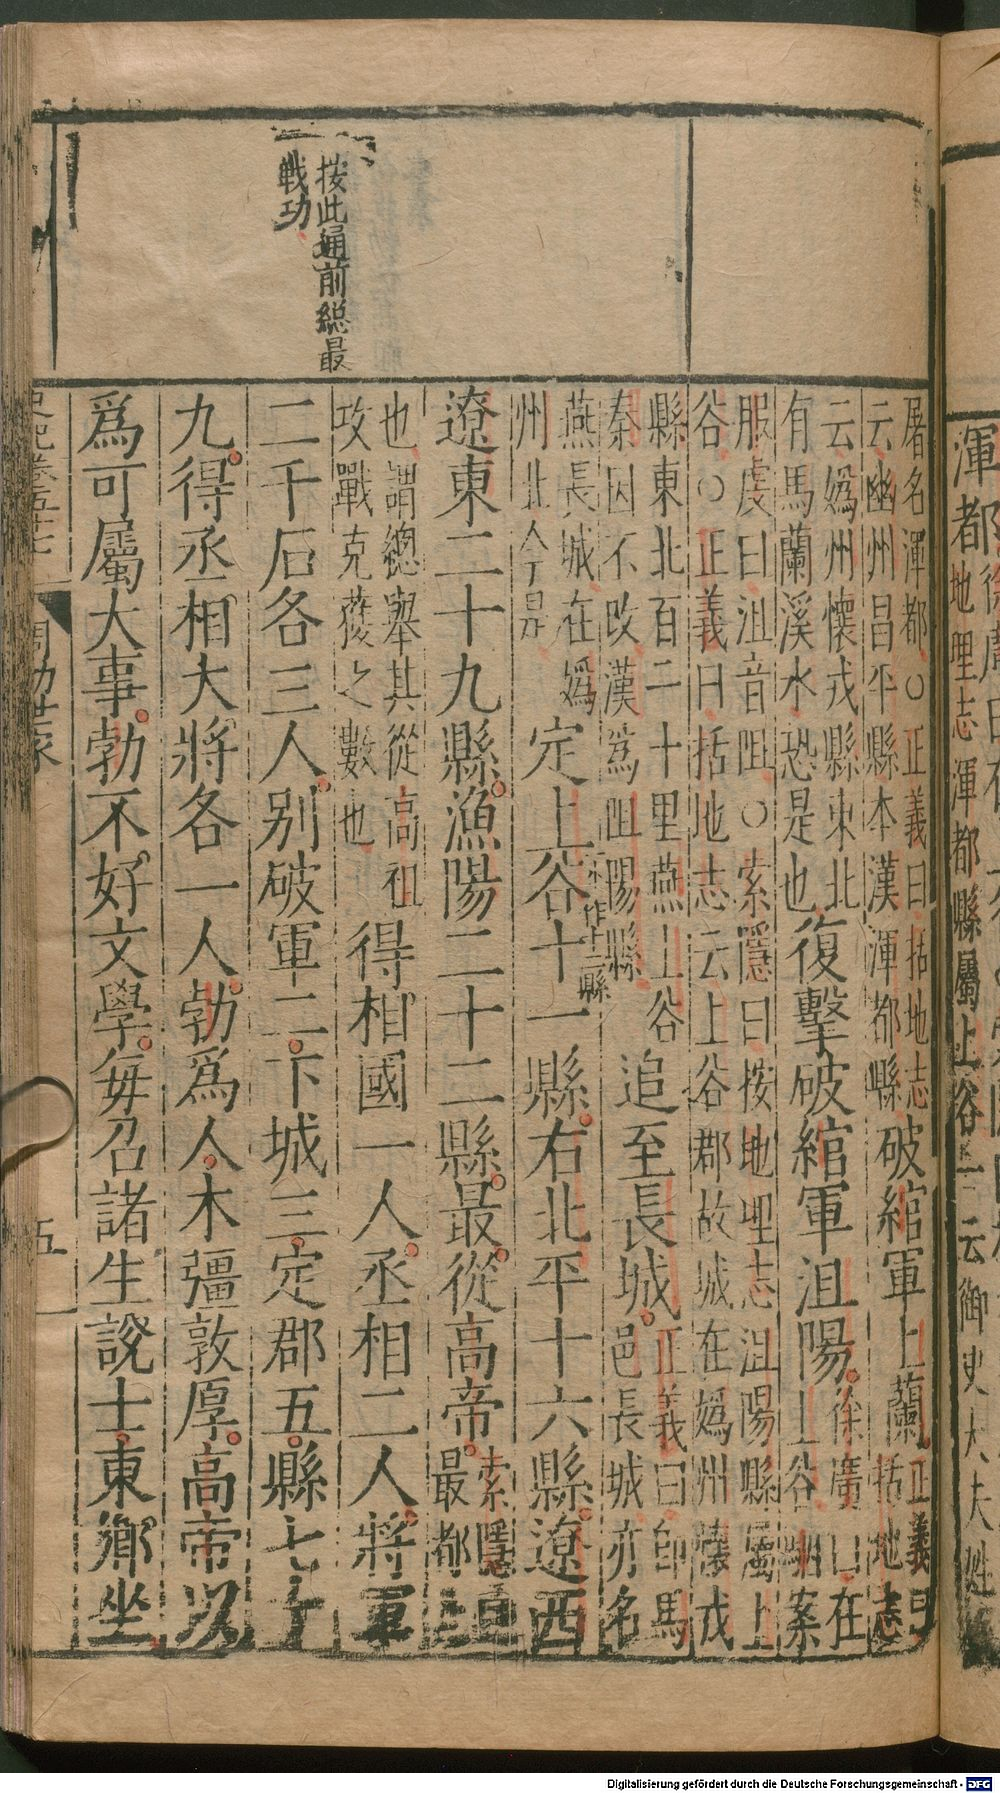 按此通前総最
戰功
屠名渾都○正義曰括地志
云幽州昌平縣本漢渾都縣
破綰軍上蘭
正義曰
括地志
云媯州懷戎縣東北
有馬蘭溪水恐是也
復擊破綰軍沮陽
徐廣曰在
上谷駰案
服虔曰沮音阻○索隱曰按地理志沮陽縣屬上
谷○正義曰括地志云上谷郡故城在媯州懷戎
縣東北百二十里燕上谷
秦因不改漢爲阻陽縣
追至長城
正義曰卽馬
邑長城亦名
燕長城在媯
州北今是
定上谷十一縣右北平十六縣遼西
作十二縣
遼東二十九縣漁陽二十二縣最從高帝
索隱曰
最都
也謂總舉其從高祖
攻戰克獲之數也
得相國一人丞相二人將軍
二千石各三人別破軍二下城三定郡五縣七十
九得丞相大將各一人勃爲人木彊敦厚高帝以
爲可屬大事勃不好文學每召諸生說士東鄉坐
史記卷五十七
周勃世家
五
渾都
地理志渾都縣屬上谷一云御史大夫姓
Digitalisierung gefördert durch die Deutsche Forschungsgemeinschaft - DFG